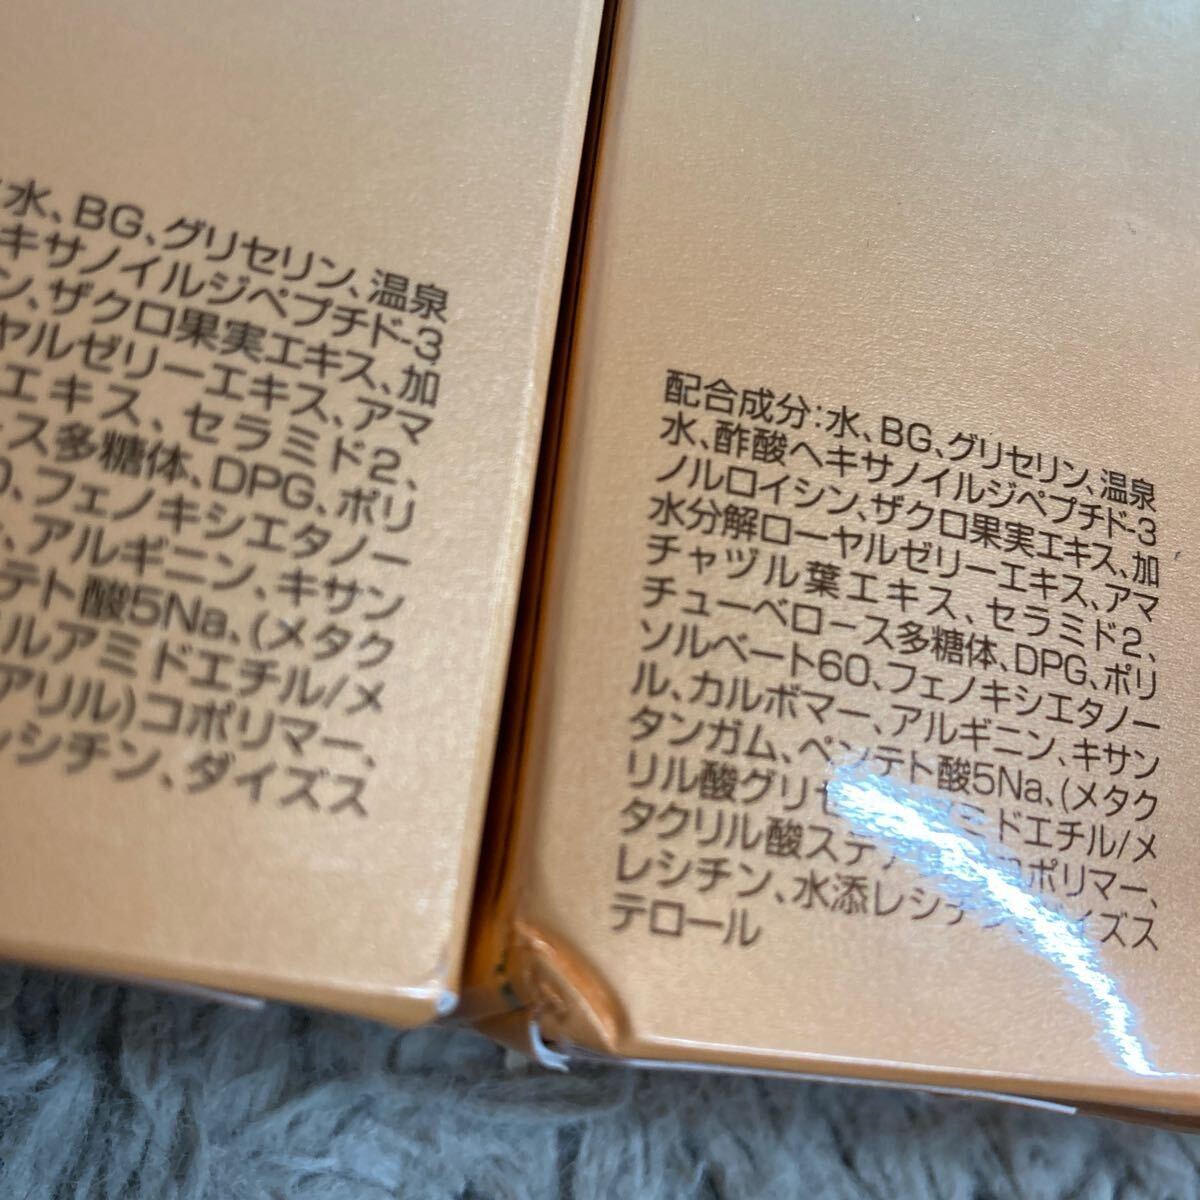 水、BG、グリセリン、温泉
キサノイルジペプチド-3
ン、ザクロ果実エキス、加
ヤルゼリーエキス、アマ
エキス、セラミド2、
ス多糖体、DPG、ポリ
0、フェノキシエタノー
、アルギニン、キサン
テト酸5Na、(メタク
ルアミドエチル/メ
アリル)コポリマー、
レシチン、ダイズス
配合成分:水、BG、グリセリン、温泉
水、酢酸ヘキサノイルジペプチド-3
ノルロイシン、ザクロ果実エキス、加
水分解ローヤルゼリーエキス、アマ
チャヅル葉エキス、セラミド2、
チューベロース多糖体、DPG、ポリ
ソルベート60、フェノキシエタノー
ル、カルボマー、アルギニン、キサン
タンガム、ペンテト酸5Na、(メタク
リル酸グリセ ミドエチル/メ
タクリル酸ステア コポリマー、
レシチン、水添レシチン、ダイズス
テロール